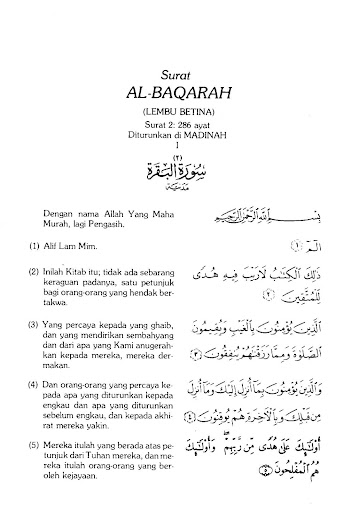 Surat
AL-BAQARAH
(LEMBU BETINA)
Surat 2: 286 ayat
Diturunkan di MADINAH
I
(٢)
سُورَةُ الْبَقَرَة
مَدَنِيَّة
Dengan nama Allah Yang Maha
Murah, lagi Pengasih.
بِسْمِ اللَّهِ الرَّحْمَٰنِ الرَّحِيمِ
(1) Alif Lam Mim.
الٓمٓ (١)
(2) Inilah Kitab itu; tidak ada sebarang
keraguan padanya, satu petunjuk
bagi orang-orang yang hendak ber-
takwa.
ذَٰلِكَ الْكِتَابُ لَا رَيْبَ فِيهِ هُدًى
لِلْمُتَّقِينَ (٢)
(3) Yang percaya kepada yang ghaib,
dan yang mendirikan sembahyang
dan dari apa yang Kami anugerah-
kan kepada mereka, mereka der-
makan.
الَّذِينَ يُؤْمِنُونَ بِالْغَيْبِ وَيُقِيمُونَ
الصَّلَوٰةَ وَمِمَّا رَزَقْنَٰهُمْ يُنْفِقُونَ (٣)
(4) Dan orang-orang yang percaya ke-
pada apa yang diturunkan kepada
engkau dan apa yang diturunkan
sebelum engkau, dan kepada akhi-
rat mereka yakin.
وَالَّذِينَ يُؤْمِنُونَ بِمَا أُنْزِلَ إِلَيْكَ وَمَا أُنْزِلَ
مِنْ قَبْلِكَ وَبِالْآخِرَةِ هُمْ يُوقِنُونَ (٤)
(5) Mereka itulah yang berada atas pe-
tunjuk dari Tuhan mereka, dan me-
reka itulah orang-orang yang ber-
oleh kejayaan.
أُولَٰئِكَ عَلَىٰ هُدًى مِنْ رَبِّهِمْ وَأُولَٰئِكَ
هُمُ الْمُفْلِحُونَ (٥)